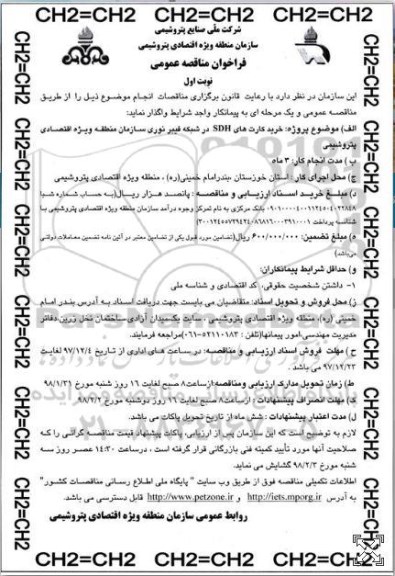 CH2=CH2 CH2=CH2 CH2=CH2 CH2=CH2
شرکت ملی صنایع پتروشیمی
سازمان منطقه ویژه اقتصادی پتروشیمی
فراخوان مناقصه عمومی
نوبت اول
این سازمان در نظر دارد با رعایت قانون برگزاری مناقصات انجام موضوع ذیل را از طریق
مناقصه عمومی و یک مرحله ای به پیمانکار واجد شرایط واگذار نماید:
الف) موضوع پروژه: خرید کارت های SDH در شبکه فیبر نوری سازمان منطقه ویژه اقتصادی
پتروشیمی
ب) مدت انجام کار: ۳ ماه
ج) محل اجرای کار: استان خوزستان بندرامام خمینی(ره)، منطقه ویژه اقتصادی پتروشیمی
د) مبلغ خرید اسناد ارزیابی و مناقصه: پانصد هزار ریال(به حساب شماره شبا
بانک مرکزی به نام تمرکز وجوه درآمد سازمان منطقه ویژه اقتصادی پتروشیمی با
شناسه پرداخت
ه) مبلغ تضمین: ۶۰۰/۰۰۰/۰۰۰ ریال(تضامین مورد قبول یکی از تضامین معتبر در آئین نامه تضمین معاملات دولتی
می‌باشد)
و) حداقل شرایط پیمانکاران:
۱- داشتن شخصیت حقوقی، کد اقتصادی و شناسه ملی
ز) محل فروش و تحویل اسناد: متقاضیان می بایست جهت دریافت اسناد به آدرس بندر امام
خمینی (ره)، منطقه ویژه اقتصادی پتروشیمی، سایت یک، میدان آزادی ساختمان نخل زرین دفاتر
مدیریت مهندسی/امور پیمانها(تلفن: ۵۲۱۱۰۱۸۳-۰۶۱) مراجعه فرمایند.
ح) مهلت فروش اسناد ارزیابی و مناقصه: در ساعت های اداری از تاریخ ۹۷/۱۲/۴ لغایت
۹۷/۱۲/۲۳ می باشد.
ط) زمان تحویل مدارک ارزیابی ومناقصه: ازساعت ۸ صبح لغایت ۱۶ روز شنبه مورخ ۹۸/۱/۳۱
ی) مهلت انصراف پیشنهادات: ازساعت ۸ صبح لغایت ۱۶ روز دوشنبه مورخ ۹۸/۲/۲
ل) مدت اعتبار پیشنهادات: شش ماه از تاریخ تحویل پاکات می باشد.
لازم به توضیح است که این سازمان پس از ارزیابی، پاکات پیشنهاد قیمت مناقصه گرانی را که
صلاحیت آنها مورد تأیید کمیته فنی بازرگانی قرار گرفته است، درساعت ۱۴:۳۰ عصر روز سه
شنبه مورخ ۹۸/۲/۳ گشایش می نماید.
اطلاعات تکمیلی مناقصه فوق از طریق وب سایت " پایگاه ملی اطلاع رسانی مناقصات کشور"
به آدرس http://iets.mporg.ir و http://www.petzone.ir قابل دسترسی می باشد.
روابط عمومی سازمان منطقه ویژه اقتصادی پتروشیمی
CH2=CH2 CH2=CH2 CH2=CH2 CH2=CH2